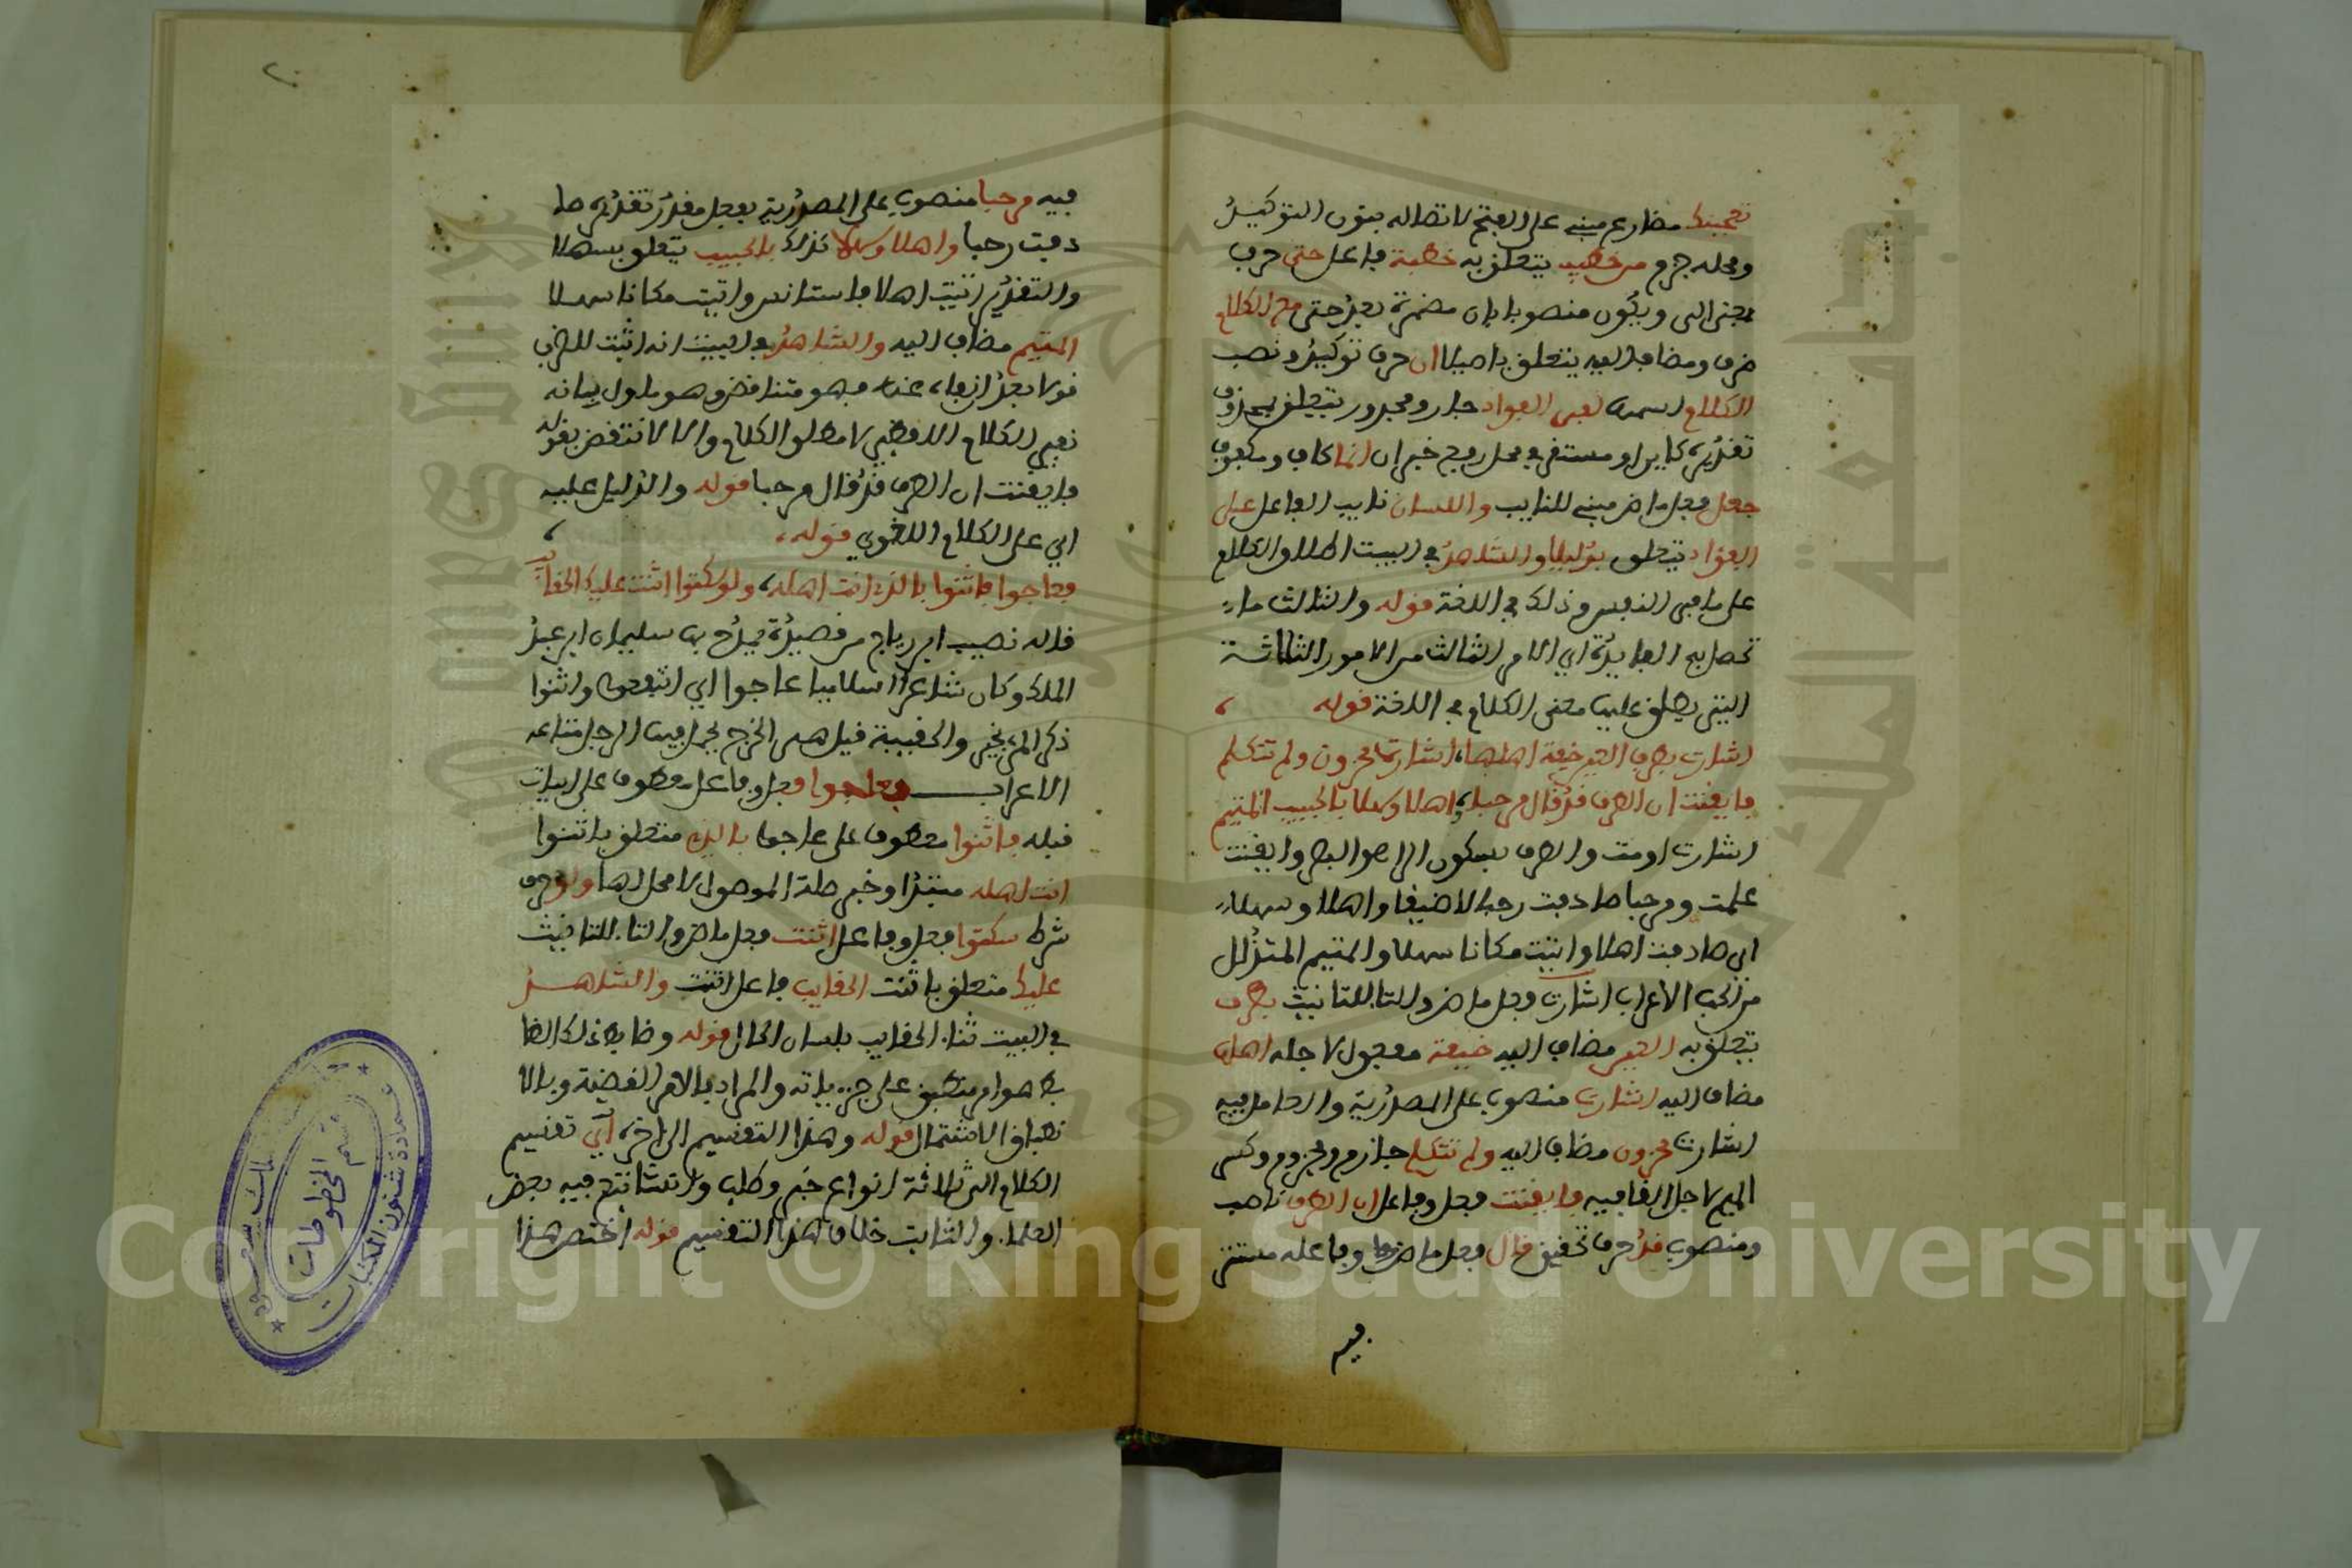 تعجبنك مضارع مبني على الفتح لاتصاله بنون التوكيد
ومحله جزم من خطيب يتعلق به خطبة فاعل حتى حرف
بمعنى الى ويكون منصوبا بان مضمرة بعد حتى مع الكلام
ظرف ومضاف اليه يتعلق باصيلا ان حرف توكيد ونصب
الكلام اسمه لفي الفواد جار ومجرور يتعلق بمحذوف
تقديره كاين او مستقر في محل رفع خبر ان انما كاف ومكفوف
جعل فعل ماض مبني للنايب واللسان نايب الفاعل على
الفؤاد يتعلق بدليلا والشاهد في البيت اطلاق الكلام
على ما في النفس وذلك في اللغة قوله والثالث ما
تحصل به الفايدة اي الامر الثالث من الامور الثلاثة
التي يطلق عليها معنى الكلام في اللغة قوله ،
اشارت بطرف العين خيفة اهلها، اشارة محزون ولم تتكلم
فايقنت ان الطرف قد قال مرحبا، واهلا وسهلا بالحبيب المتيم
اشارت اومت والطرف بسكون الرا هو البصر وايقنت
علمت ومرحبا صادفت رحبا لا ضيقا واهلا وسهلا
اي صادفت اهلا واتيت مكانا سهلا والمتيم المتذلل
من الحب الاعراب اشارت فعل ماض والتا للتانيث بطرف
يتعلق به العين مضاف اليه خيفة مفعول لاجله اهلها
مضاف اليه اشارة منصوب على المصدرية والعامل فيه
اشارت محزون مضاف اليه ولم تتكلم جازم ومجزوم وكسر
الميم لاجل القافيه فايقنت فعل وفاعل ان الطرف ناصب
ومنصوب قد حرف تحقيق قال فعل ماض وفاعله مستتر
فيه
فيه مرحبا منصوب على المصدرية بفعل مقدر تقديره صا
دفت رحبا واهلا وسهلا كذلك بالحبيب يتعلق بسهلا
والتقدير اتيت اهلا فاستانس واتيت مكانا سهلا
المتيم مضاف اليه والشاهد في البيت انه اثبت للطرف
قولا بعد انتفاء عنه فهو متناقض وهو ملول بيانه
نفي الكلام اللفظي لا مطلق الكلام والا لا نتقض بقوله
فايقنت ان الطرف قد قال مرحبا قوله والدليل عليه
اي على الكلام اللغوي قوله، ،
فعاجوا فاثنوا بالذي انت اهله، ولو سكتوا اثنت عليك الحقايب
قاله نصيب ابن رياح من قصيدة يمدح بها سليمان ابن عبد
الملك وكان شاعرا اسلاميا عاجوا اي اثبعوا واثنوا
ذكر المر بخير والحقيبة قيل هي الخرج يجعل فيها الرجل متاعه
الاعراب فعاجوا فعل وفاعل معطوف على ابيات
قبله فاثنوا معطوف على عاجوا بالذي متعلق باثنوا
انت اهله مبتدا وخبر صلة الموصول لا محل لها ولو حرف
شرط سكتوا فعل وفاعل اثنت فعل ماض والتا للتانيث
عليك متعلق باثنت الحقايب فاعل اثنت والشاهد
في البيت ثنا الحقايب بلسان الحال قوله وضابط ذلك الضا
بط هو امر منطبق على جزيياته والمراد بالامر القضية وبالا
نطباق الاشتمال قوله وهذا التقسيم الى اخره آي تقسيم
الكلام الى ثلاثة انواع خبر وطلب وانشا تبع فيه بعض
العلما. والثابت خلاف هذا التقسيم قوله اختص هذا
قسم المخطوطات
عمادة شئون المكتبات
Copyright © King Saud University